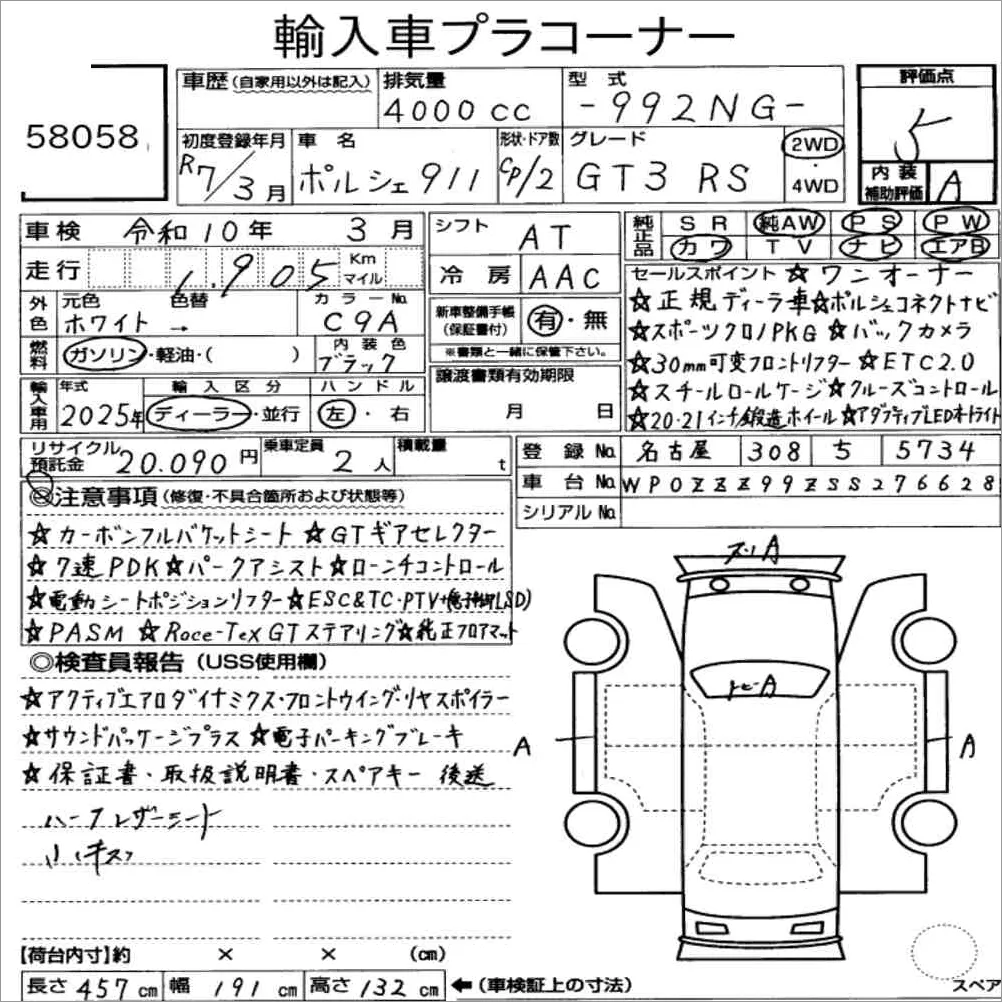 輸入車プラコーナー
58058
車歴(自家用以外は記入)
排気量
4000cc
型式
-992NG-
評価点
5
内装補助評価 A
初度登録年月
R7/3月
車名
ポルシェ 911
形状・ドア数
CP/2
グレード
GT3 RS
2WD・4WD
車検 令和10年 3月
走行 1,905 Km マイル
シフト AT
冷房 AAC
純正品 SR 純AW PS PW
カワ TV ナビ エアB
外色 元色 ホワイト 色替 →
カラーNo. C9A
燃料 ガソリン・軽油・( )
内装色 ブラック
新車整備手帳(保証書付) 有・無
※書類と一緒に保管下さい。
輸入車用 年式 2025年
輸入区分 ディーラー・並行
ハンドル 左・右
譲渡書類有効期限
月 日
セールスポイント ☆ワンオーナー
☆正規ディーラ車☆ポルシェコネクトナビ
☆スポーツクロノPKG ☆バックカメラ
☆30mm可変フロントリフター☆ETC2.0
☆スチールロールケージ☆クルーズコントロール
☆20・21インチ鍛造ホイール☆アダプティブLEDオートライト
リサイクル預託金 20.090円
乗車定員 2人
積載量 t
登録No. 名古屋 308 ち 5734
車台No. WP0ZZZ99ZSS276628
シリアルNo.
◎注意事項(修復・不具合箇所および状態等)
☆カーボンフルバケットシート☆GTギアセレクター
☆7速PDK☆パークアシスト☆ローンチコントロール
☆電動シートポジションリフター☆ESC&TC・PTV+電子制御LSD)
☆PASM ☆Race-Tex GTステアリング☆純正フロアマット
◎検査員報告(USS使用欄)
☆アクティブエアロダイナミクス・フロントウイング・リヤスポイラー
☆サウンドパッケージプラス☆電子パーキングブレーキ
☆保証書・取扱説明書・スペアキー 後送
ハーフレザーシート
小キズ
スリA
トビA
A
A
【荷台内寸】約 × × (cm)
長さ 457cm 幅 191cm 高さ 132cm ←(車検証上の寸法)
スペア